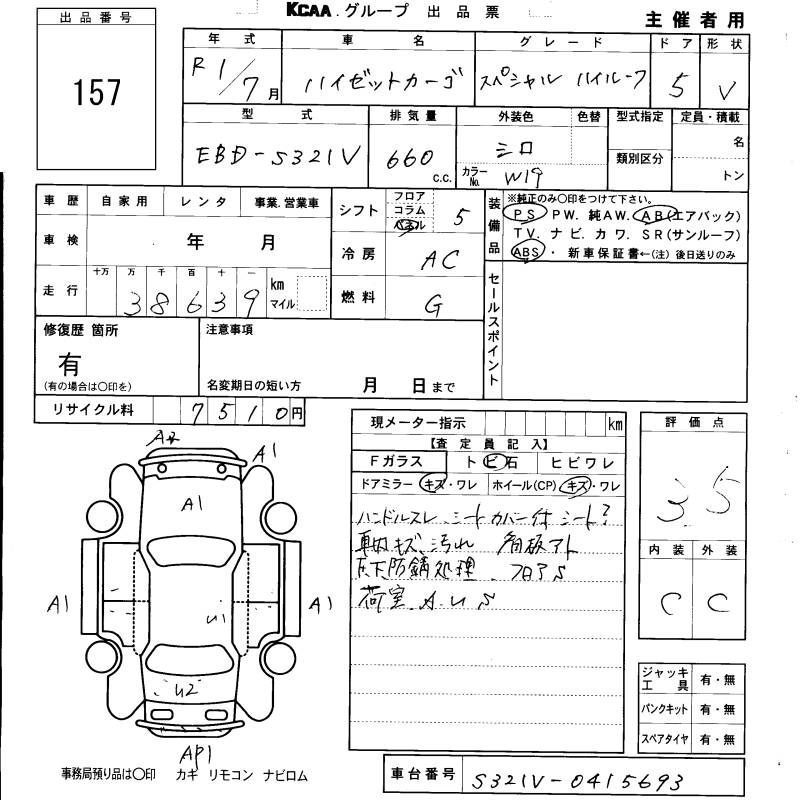 KCAA グループ 出品票
主催者用
出品番号
157
年式 車名 グレード ドア 形状
R1/7月 ハイゼットカーゴ スペシャル ハイルーフ 5 V
型式 排気量 外装色 色替 型式指定 定員・積載
EBD-S321V 660c.c. シロ 名
カラーNo. W19 類別区分 トン
車歴 自家用 レンタ 事業.営業車
車検 年 月
走行 十万 万 千 百 十 一
38639 km マイル
シフト フロア コラム 5
冷房 AC
燃料 G
装備品
※純正のみ○印をつけて下さい。
PS PW. 純AW. AB(エアバック)
TV. ナビ. カワ. SR(サンルーフ)
ABS・ 新車保証書←(注)後日送りのみ
セールスポイント
修復歴 箇所
有
(有の場合は○印を)
注意事項
名変期日の短い方 月 日まで
リサイクル料 7510円
現メーター指示 km
【査定員記入】
Fガラス トビ石 ヒビワレ
ドアミラー キズ・ワレ ホイール(CP) キズ・ワレ
ハンドルスレ シートカバー付 シート?
車内キズ、汚れ 角板アト
下.下防錆処理 フロアS
荷室 A.U.S
評価点
3.5
内装 外装
C C
ジャッキ工具 有・無
パンクキット 有・無
スペアタイヤ 有・無
A2
A1
A1
A1
U1
A1
U2
AP1
事務局預り品は○印 カギ リモコン ナビロム
車台番号 S321V-0415693